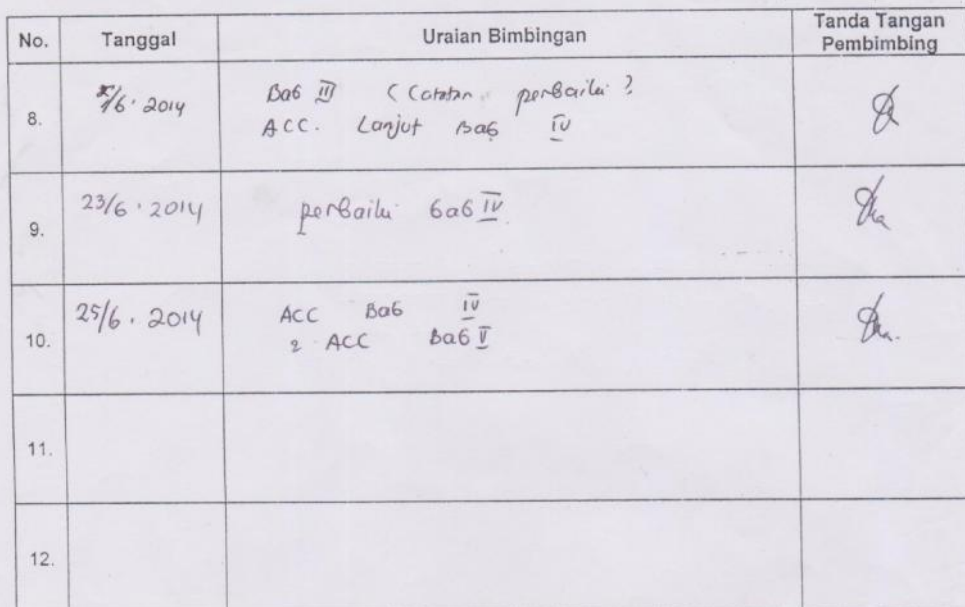 No. Tanggal Uraian Bimbingan Tanda Tangan Pembimbing
8. /6 . 2014 Bab III (Catatan perbaiki ?
ACC. Lanjut Bab IV
9. 23/6 . 2014 perbaiki bab IV
10. 25/6 . 2014 ACC Bab IV
2 ACC Bab V
11.
12.